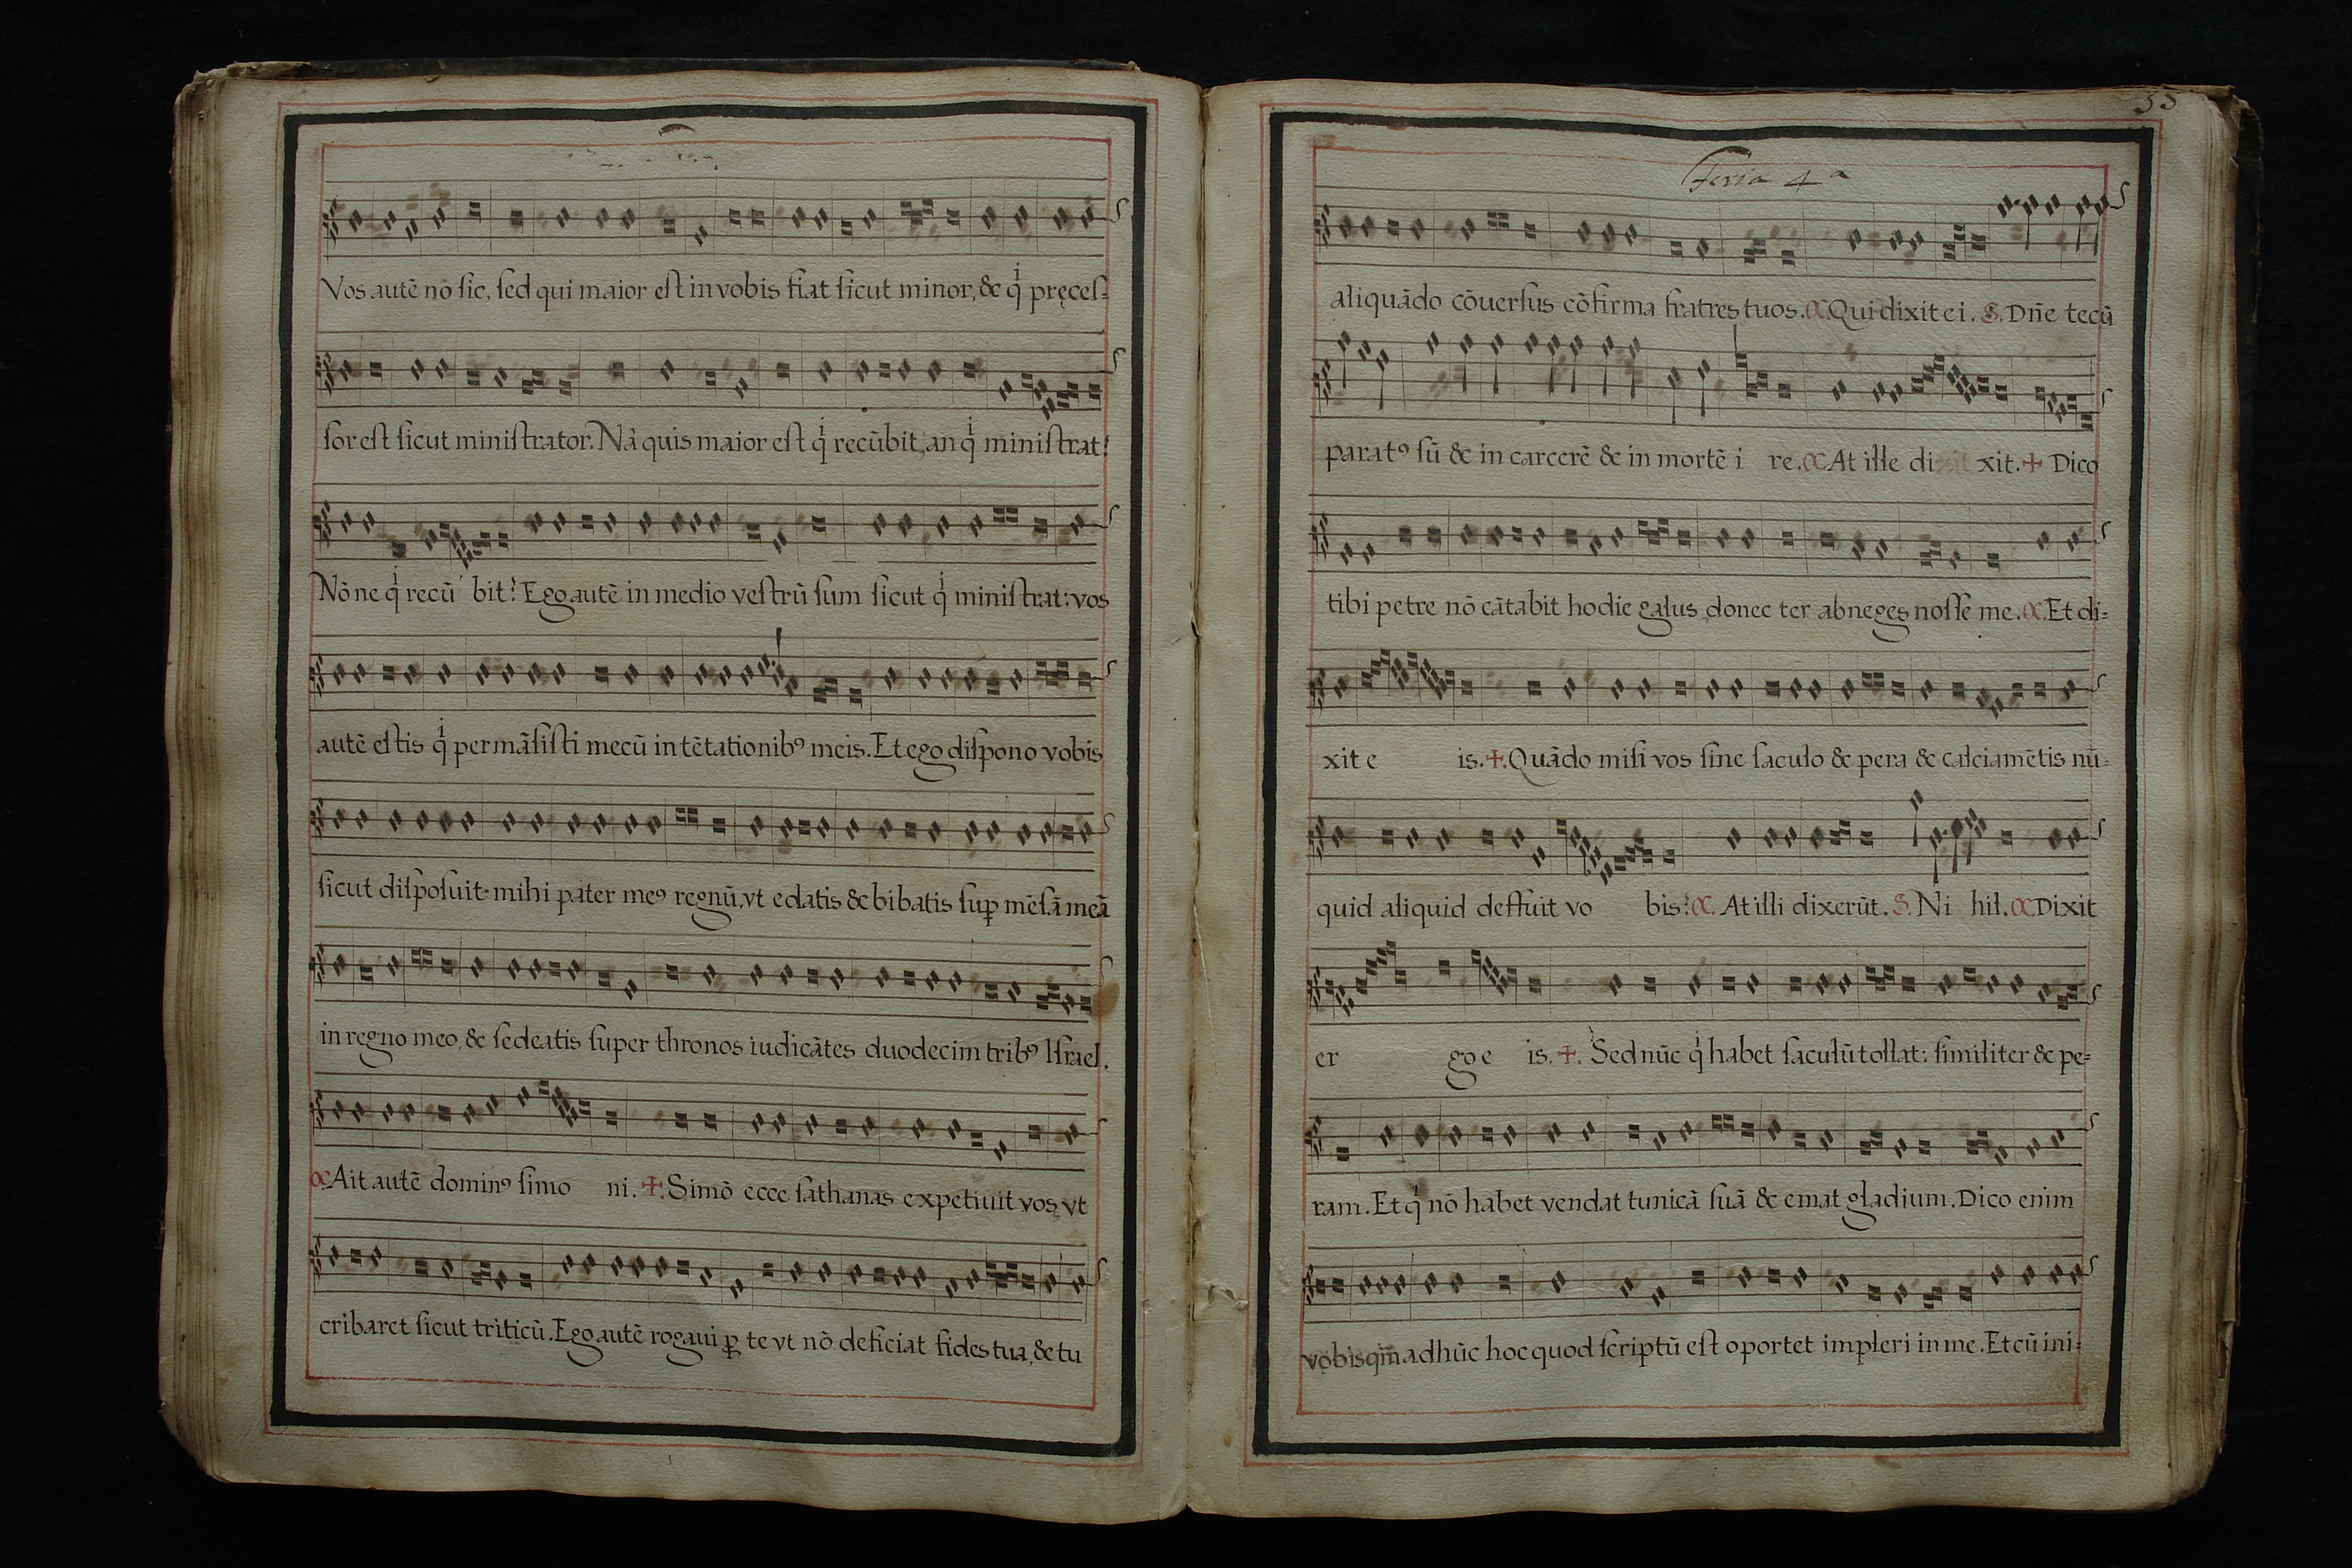 Vos autē nō ſic, ſed qui maior eſt in vobis fiat ſicut minor, & q̇ pręceſ-
ſor eſt ſicut miniſtrator. Nā quis maior eſt q̇ recūbit, an q̇ miniſtrat?
Nōne q̇ recū bit? Ego autē in medio veſtrū ſum ſicut q̇ miniſtrat: vos
autē eſtis q̇ permāſiſti mecū in tētationibꝰ meis. Et ego diſpono vobis
ſicut diſpoſuit mihi pater meꝰ regnū, vt edatis & bibatis ſuꝑ mēſā meā
in regno meo, & ſedeatis ſuper thronos iudicātes duodecim tribꝰ Iſrael.
C. Ait autē dominꝰ ſimo ni. ✝. Simō ecce ſathanas expetiuit vos, vt
cribaret ſicut triticū. Ego autē rogaui ꝓ te vt nō deficiat fides tua, & tu
55
feria 4ª
aliquādo cōuerſus cōfirma fratres tuos. C. Qui dixit ei. S. Dn̄e tecū
paratꝰ ſū & in carcerē & in mortē i re. C. At ille di xit. ✝ Dico
tibi petre nō cātabit hodie galus, donec ter abneges noſſe me. C. Et di-
xit e is. ✝. Quādo miſi vos ſine ſaculo & pera & calciamētis nū-
quid aliquid deffuit vo bis? C. At illi dixerūt. S. Ni hil. C. Dixit
er go e is. ✝. Sed nūc q̇ habet ſaculū tollat: ſimiliter & pe-
ram. Et q̇ nō habet vendat tunicā ſuā & emat gladium. Dico enim
vobis qm̄ adhūc hoc quod ſcriptū eſt oportet impleri in me. Et cū ini-